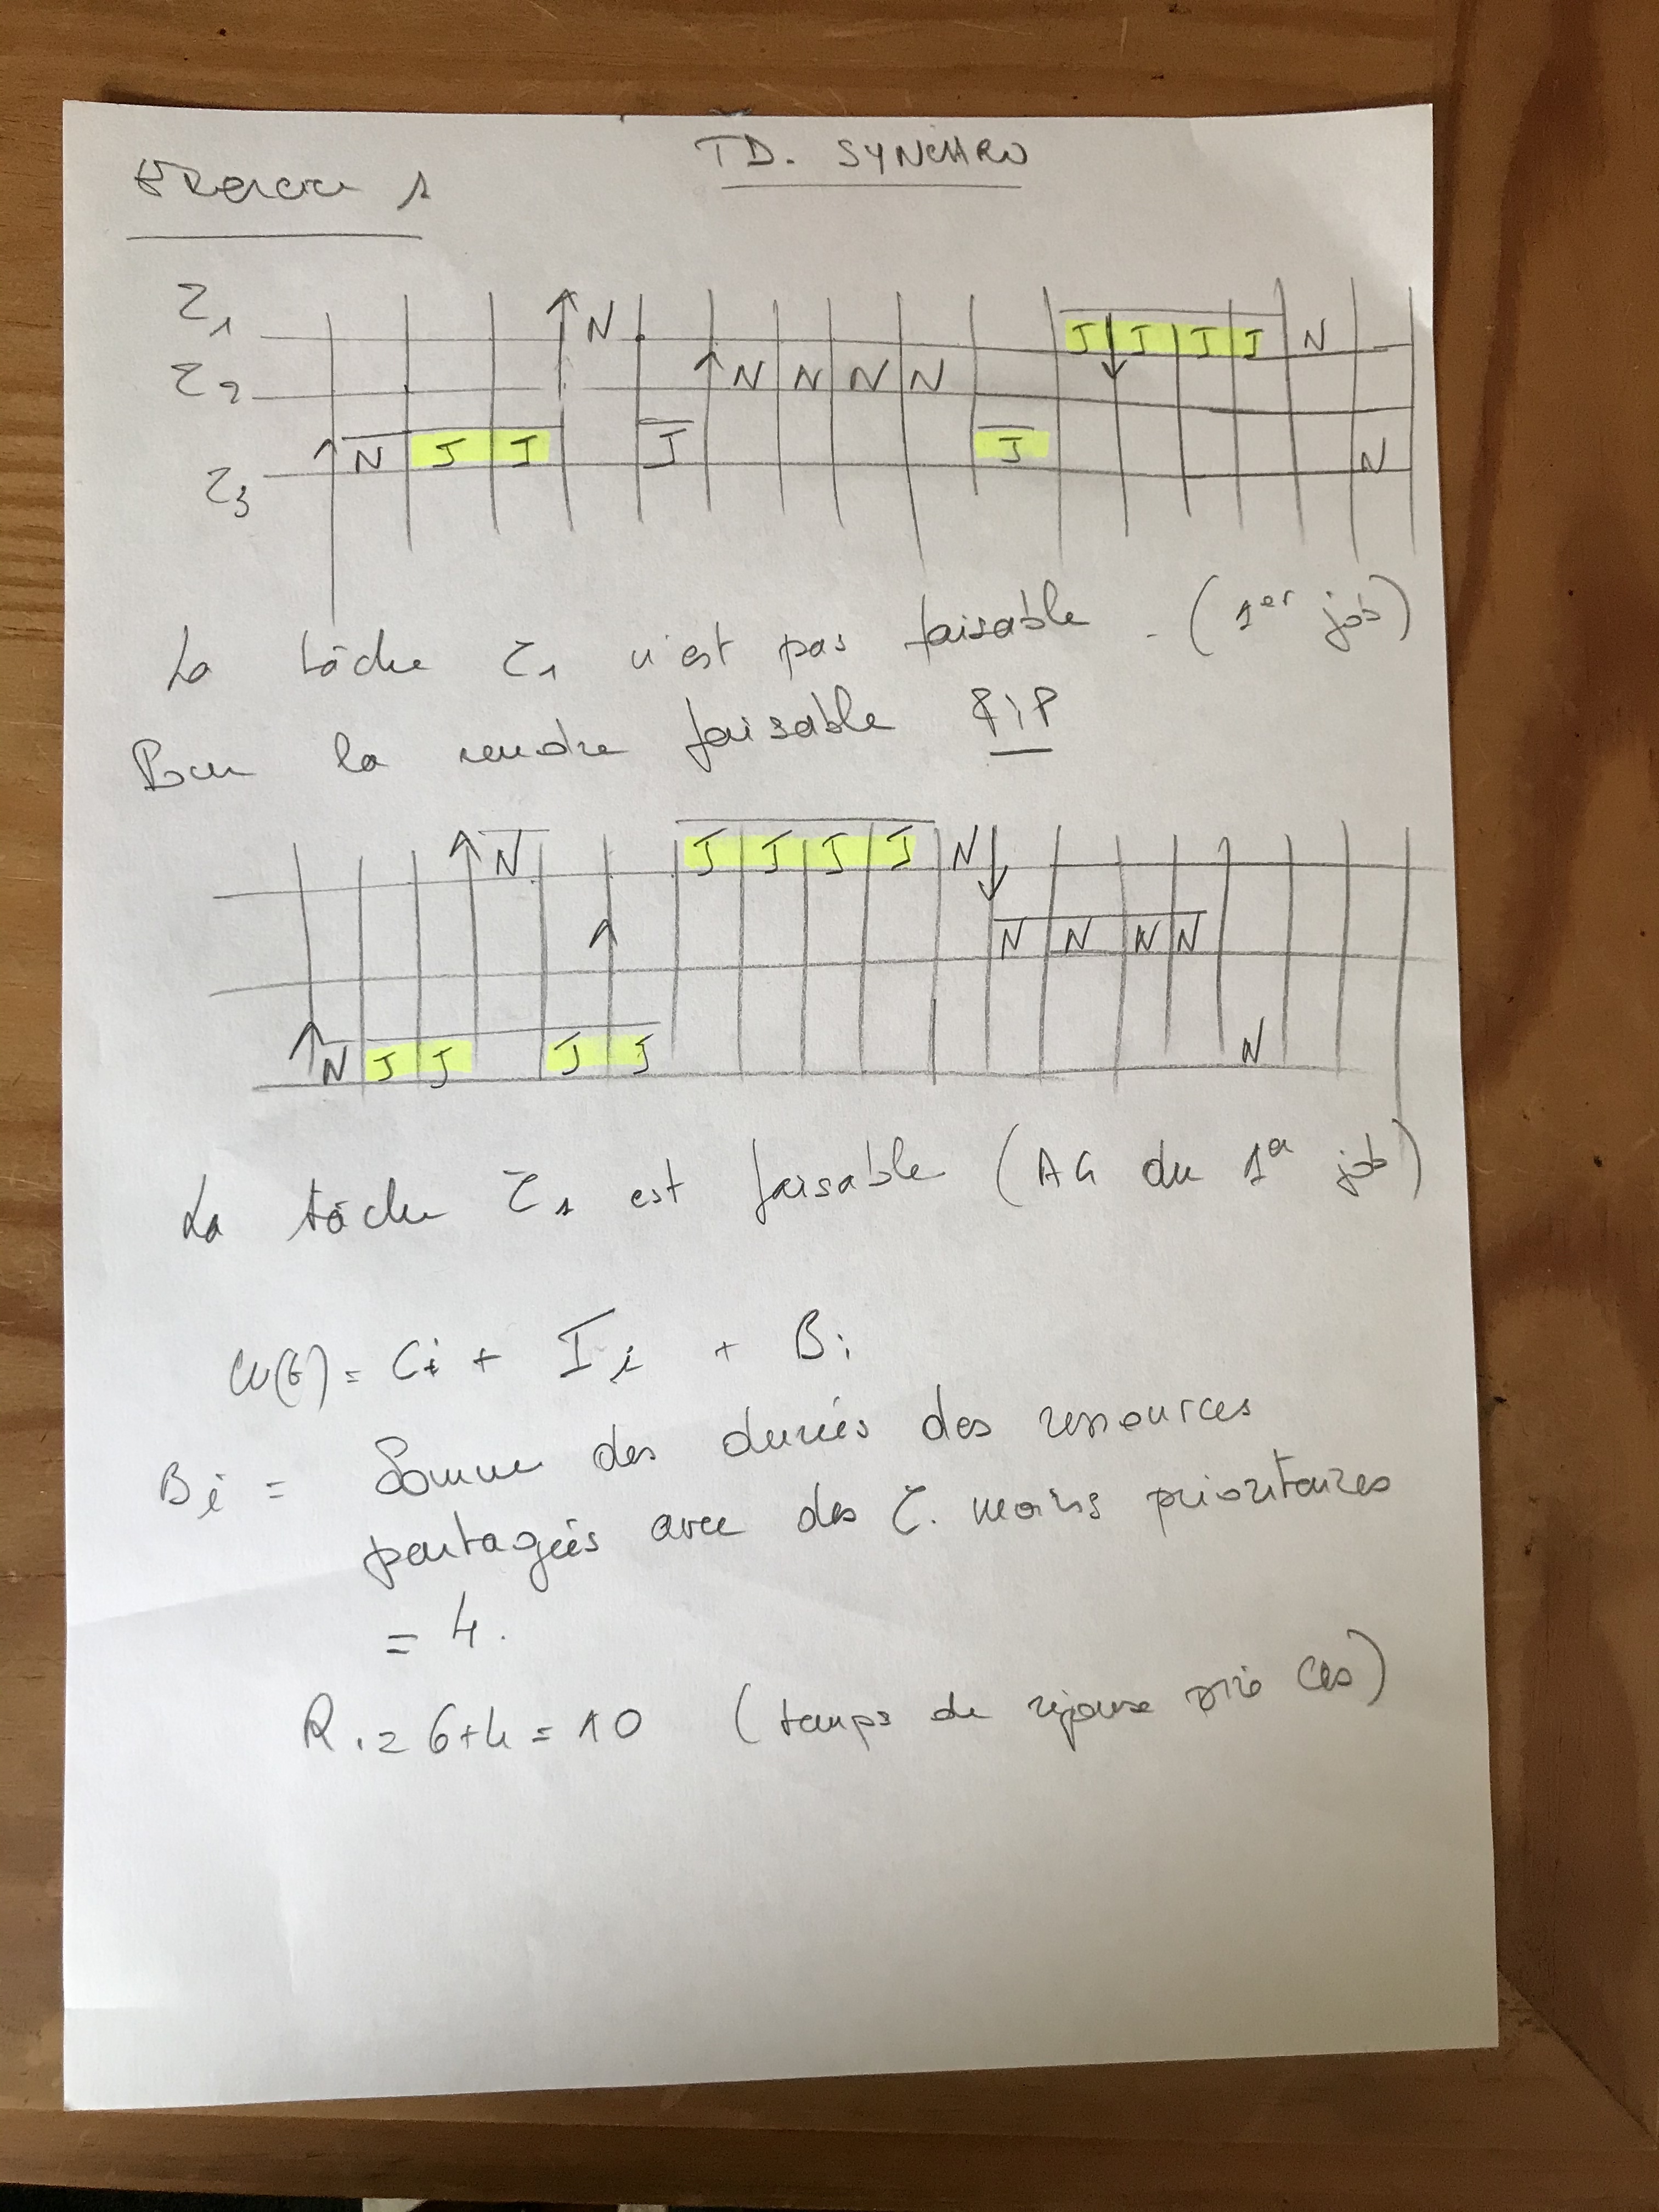 TD. SYNCHRO
Exercice 1
τ1 N J J J J N
τ2 N N N N
τ3 N J J J J N
La tâche τ1 n'est pas faisable - (1er job)
Pour la rendre faisable PIP
N J J J J N
N N N N
N J J J J N
La tâche τ1 est faisable (AG du 1er job)
W(t) = Ci + Ii + Bi
Bi = Somme des durées des ressources
partagées avec des τ. moins prioritaires
= 4.
R1 = 6+4 = 10 (temps de réponse pire cas)